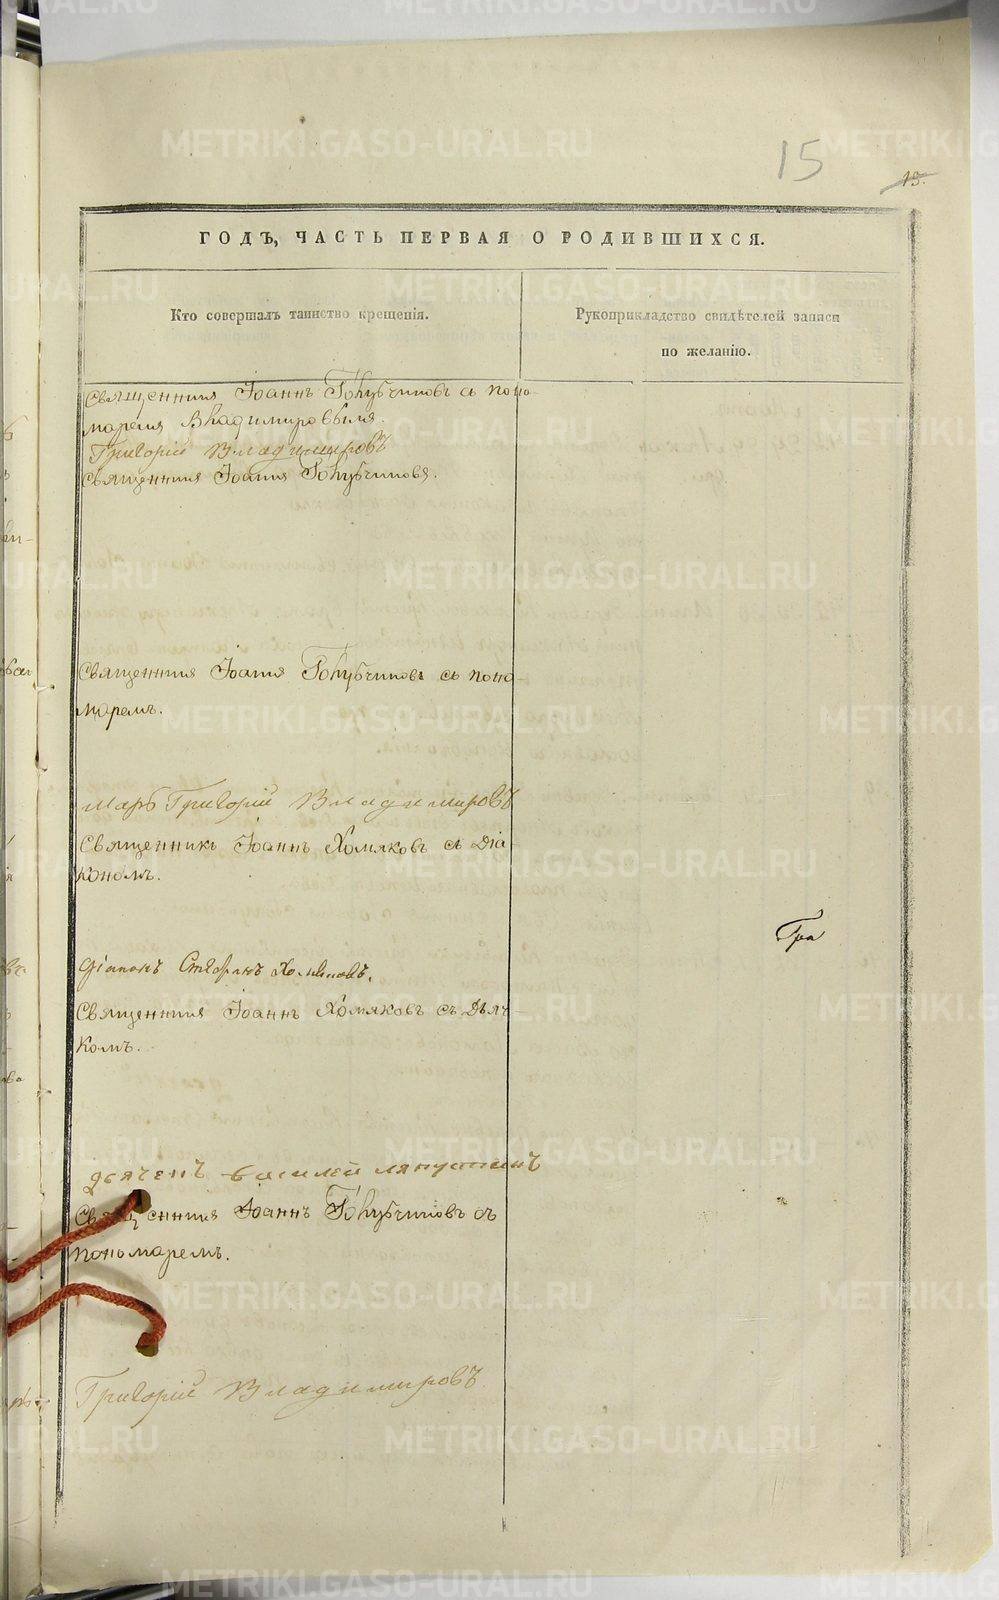 15
13.
ГОДЪ, ЧАСТЬ ПЕРВАЯ О РОДИВШИХСЯ.
Кто совершалъ таинство крещенія.
Рукоприкладство свидѣтелей записи
по желанію.
Священникъ Іоаннъ Голубчиковъ съ поно-
маремъ Владимировымъ.
Григорій Владимировъ
Священникъ Іоаннъ Голубчиковъ.
Священникъ Іоаннъ Голубчиковъ съ поно-
маремъ.
Григорій Владимировъ
Священникъ Іоаннъ Хомяковъ съ Діа-
кономъ.
Гра
Діаконъ Стефанъ Хомяковъ.
Священникъ Іоаннъ Хомяковъ съ Дьяч-
комъ.
Дьячекъ Василей Ляпустинъ
Священникъ Іоаннъ Голубчиковъ съ
пономаремъ.
Григорій Владимировъ
METRIKI.GASO-URAL.RU